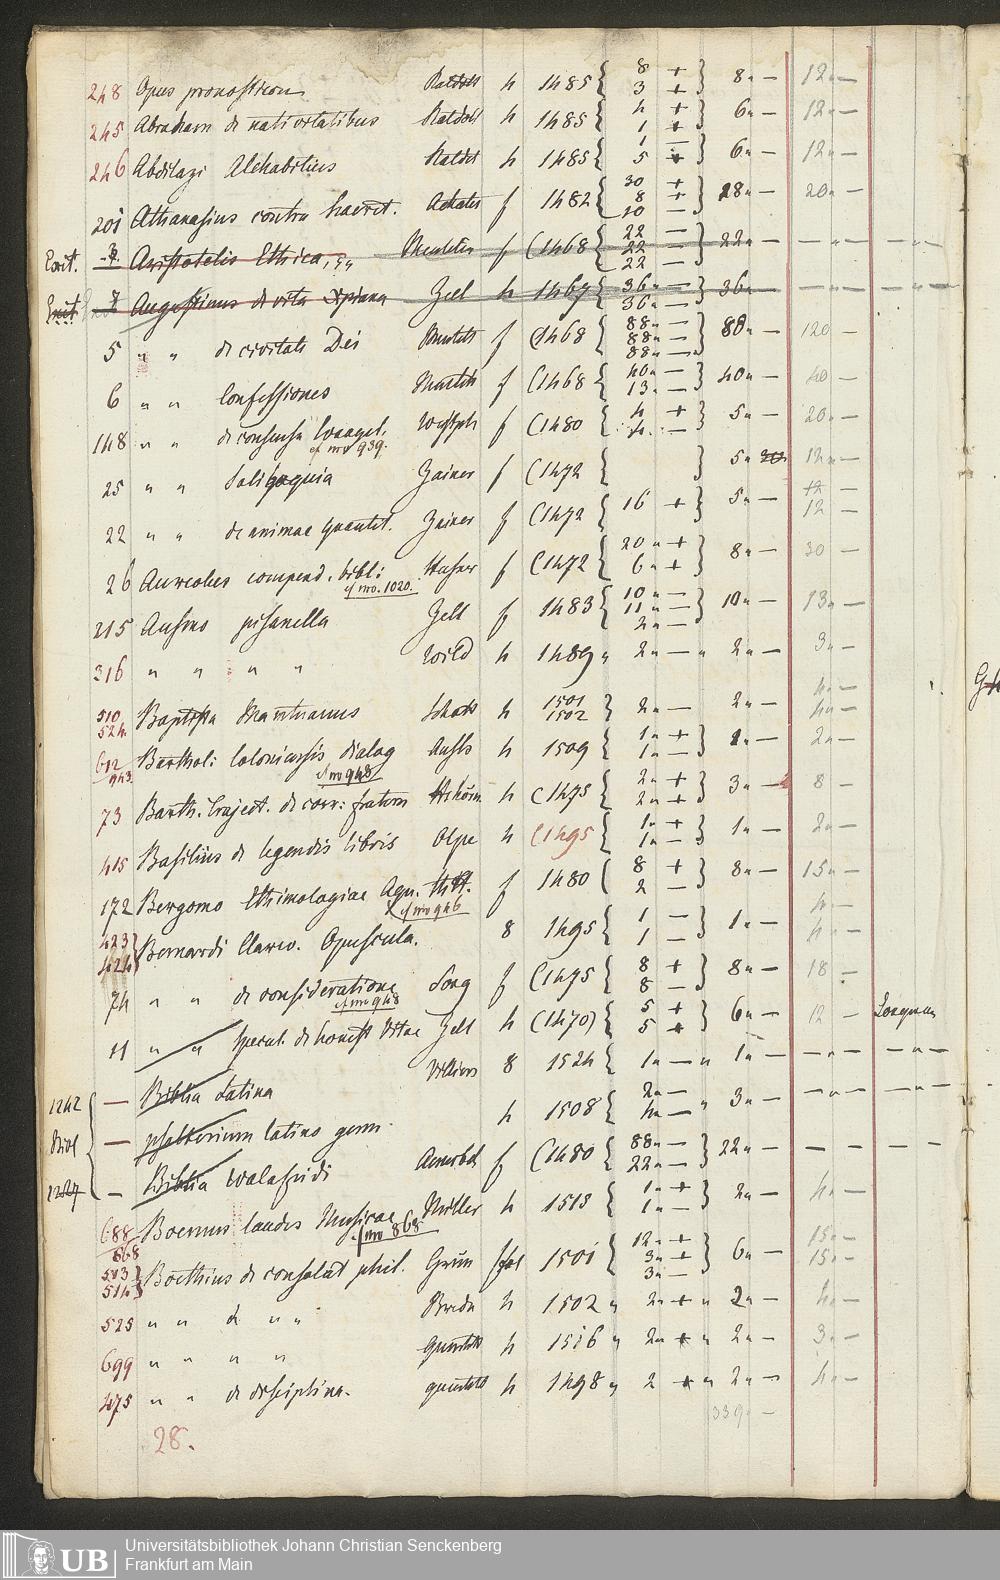 248 Opus pronosticon Ratdolt h 1485 { 8 + 3 + } 8 " — 12 " —
245 Abraham de nativitatibus Ratdolt h 1485 { 4 + 1 + } 6 " — 12 " —
246 Abdilazi Alchabitius Ratdolt h 1485 { 1 — 5 + } 6 " — 12 " —
201 Athanasius contra haeret. Achates f 1482 { 30 + 8 + 20 — } 28 " — 20 " —
Exit. Aristotelis Ethica, Mentelin f (1468 { 22 — 22 — 22 — } 22 " — — " — — " —
Exit 7 Augustinus de vita Xpiana Zell h 1467 { 36 " — 36 " — } 36 " — — " — — " —
5 " " de civitate Dei Mentels f (1468 { 88 " — 88 " — 88 " — } 88 " — 120 —
6 " " Confessiones f (1468 { 40 " — 13 " — } 40 " — 40 —
148 " " de consensu Evangel. f (1480 { 4 + 4 — } 5 " — 20 " —
cf nro 939.
25 " " Soliloquia Zainer f (1472 { } 5 " 12 " —
22 " " de animae quantit. Zainer f (1472 { 16 + 5 " — 12 — 12 —
26 Aureolus compend. bibl: f (1472 { 20 " + 6 " + } 8 " — 30 —
cf nro. 1020.
215 Ausmo pisanella Zell f 1483 { 10 " — 11 " — 2 " — } 10 " — 13 " —
316 " " " " Wild h 1489 " 2 " — " 2 " — 3 " —
510 524 Baptista Mantuanus Schott h 1501 1502 } 2 " — 2 " — 4 " — 4 " —
612 943 Barthol: Coloniensis dialog h 1509 { 1 " + 1 " — } — 2 " —
cf nro 948
73 Barth. Traject. de corr: fratern h (1475 { 2 " + 2 " + } 3 " — 8 —
415 Basilius de legendis libris Olpe h (1495 { 1 " + 1 " — } 1 " — 2 " —
172 Bergomo Ethimologiae Aqu. f 1480 ( 8 + 2 — } 8 " — 15 " —
cf nro 946
423 424 } Bernardi Clarev. Opuscula. 8 1495 { 1 — 1 — } 1 " — 4 — 4 —
74 " " de consideratione Sorg f (1475 { 8 + 8 — } 8 " — 18 —
cf nro 948
11 " " Specul. de honest Vitae Zell h (1470) { 5 + 5 + } 6 " — 12 —
— Biblia Latina 8 1524 { 1 " — " 1 " — — " — — " —
1242 Bibl 1227 { — psalterium latino germ. h 1508 { 2 " — 4 " — " 3 " — — " — — " —
— Biblia Walafridi Amerbch f (1480 { 88 " — 22 " — } 22 " — — — — —
688 868 Boemus laudes Musicae Müller h 1515 { 1 " + 1 " — } 2 " — 4 " —
cf nro 868
503 514 } Boethius de consolat phil. Grün fol 1501 { 12 " + 3 " + 3 " — } 6 " — 15 " — 15 " —
525 " " d " " Breda h 1502 " 2 " + " 2 " — 4 " —
699 " " " " Quentell h 1516 " 2 " + " 2 " — 3 " —
475 " " de disciplina. quentell h 1498 " 2 + " 2 " — 4 " —
339 " —
28.
UB Universitätsbibliothek Johann Christian Senckenberg
Frankfurt am Main